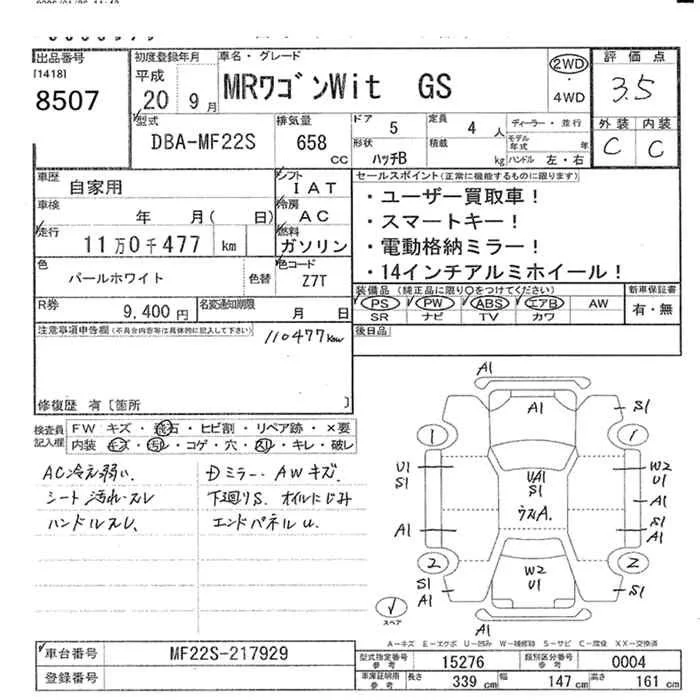 出品番号
[1418]
8507
初度登録年月
平成
20 9 月
車名・グレード
MRワゴンWit GS
2WD
・
4WD
評価点
3.5
外装 内装
C C
型式
DBA-MF22S
排気量
658
CC
ドア 5
形状
ハッチB
定員 4 人
積載 kg
ディーラー・並行
モデル年式 年
ハンドル 左・右
車歴
自家用
車検
年 月( 日)
走行
11万0千477 km
シフト
IAT
冷房
AC
燃料
ガソリン
セールスポイント(正常に機能するものに限ります)
・ユーザー買取車!
・スマートキー!
・電動格納ミラー!
・14インチアルミホイール!
色
パールホワイト
色替
色コード
Z7T
装備品(純正品に限り○をつけてください)
PS PW ABS エアB AW
SR ナビ TV カワ
新車保証書
有・無
R券
9,400円
名変通知期限
月 日
後日品
注意事項申告欄(不具合内容等は具体的に記入して下さい)
110477km
修復歴 有〔箇所 〕
検査員
記入欄
FW キズ・飛石・ヒビ割・リペア跡・×要
内装 キズ・汚れ・コゲ・穴・スレ・キレ・破レ
AC冷え弱い、
シート汚れ・スレ
ハンドルスレ、
Dミラー・AWキズ、
下廻りS、オイルにじみ
エンドパネルU、
A1
A1
S1
1
1
U1
S1
UA1
S1
W2
U1
A1
ウスA.
A1
S1
A1
2
2
W2
U1
S1
A1
S1
A1
スペア
A-キズ E-エクボ U-凹み W-補修跡 S-サビ C-腐食 XX-交換済
車台番号
MF22S-217929
登録番号
型式指定番号
参考
15276
類別区分番号
参考
0004
車庫証明用
参考
長さ 339 cm 幅 147 cm 高さ 161 cm